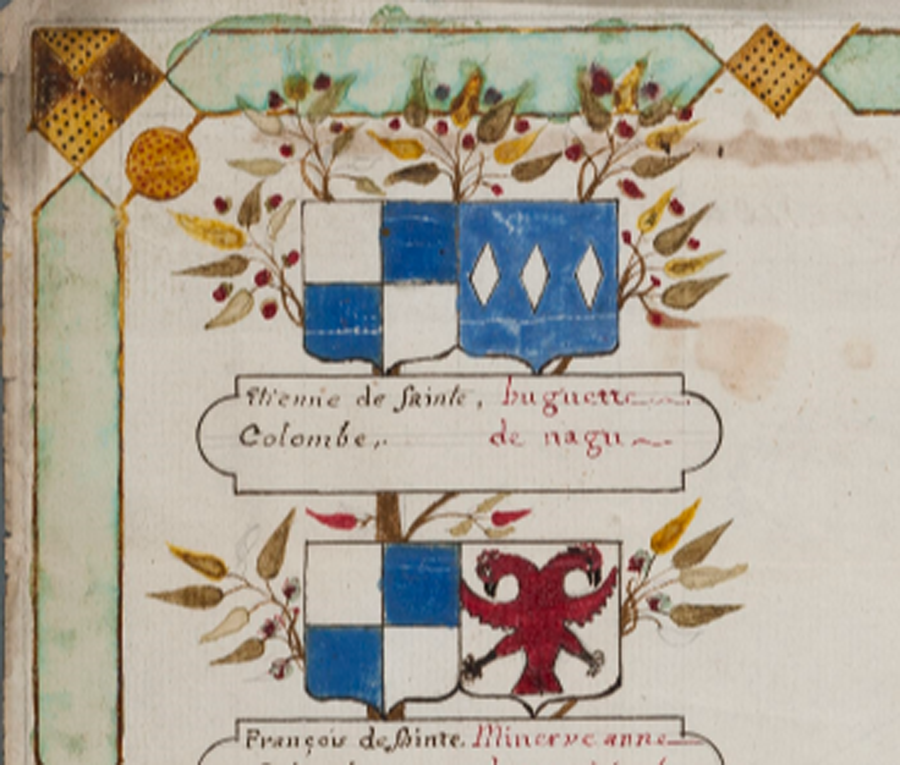 Etienne de sainte, huguette
Colombe, de nagu
François de sainte. Minerve anne